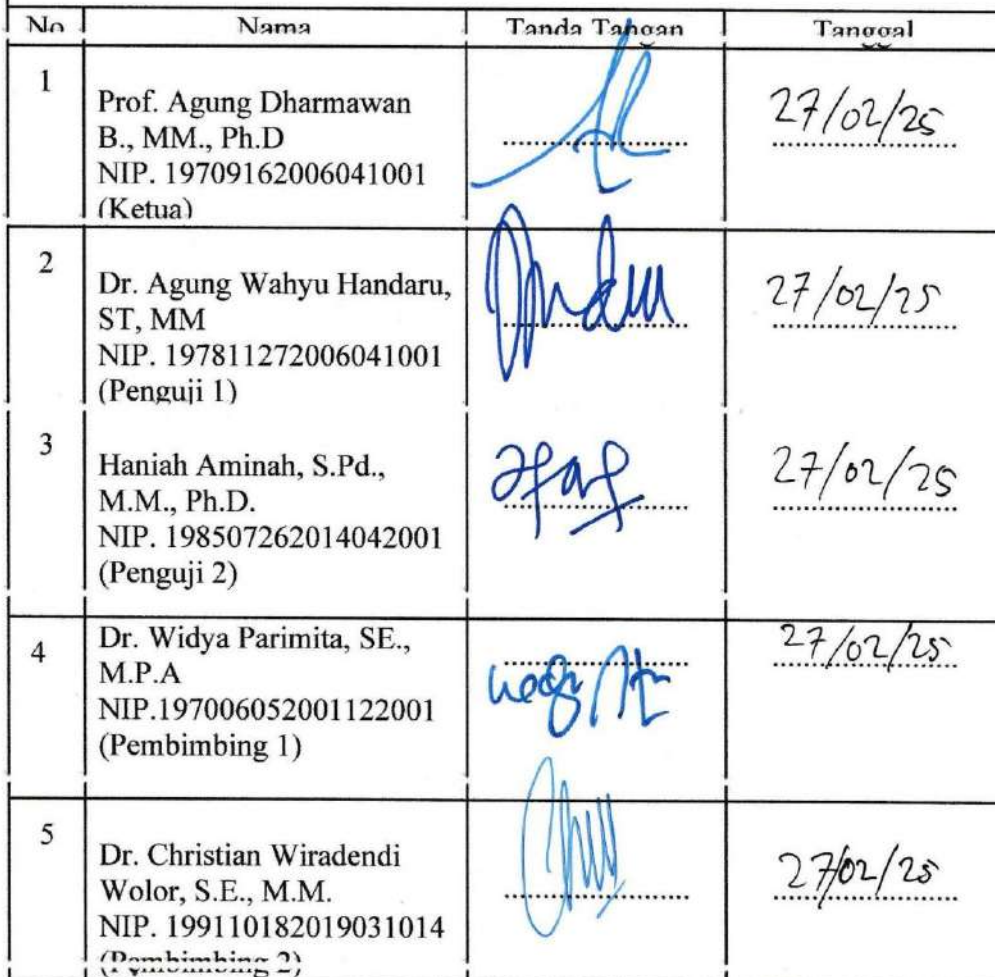 No Nama Tanda Tangan Tanggal
1
Prof. Agung Dharmawan
B., MM., Ph.D
NIP. 19709162006041001
(Ketua)
27/02/25
2
Dr. Agung Wahyu Handaru,
ST, MM
NIP. 197811272006041001
(Penguji 1)
27/02/25
3
Haniah Aminah, S.Pd.,
M.M., Ph.D.
NIP. 198507262014042001
(Penguji 2)
27/02/25
4
Dr. Widya Parimita, SE.,
M.P.A
NIP.197006052001122001
(Pembimbing 1)
27/02/25
5
Dr. Christian Wiradendi
Wolor, S.E., M.M.
NIP. 199110182019031014
(Pembimbing 2)
27/02/25